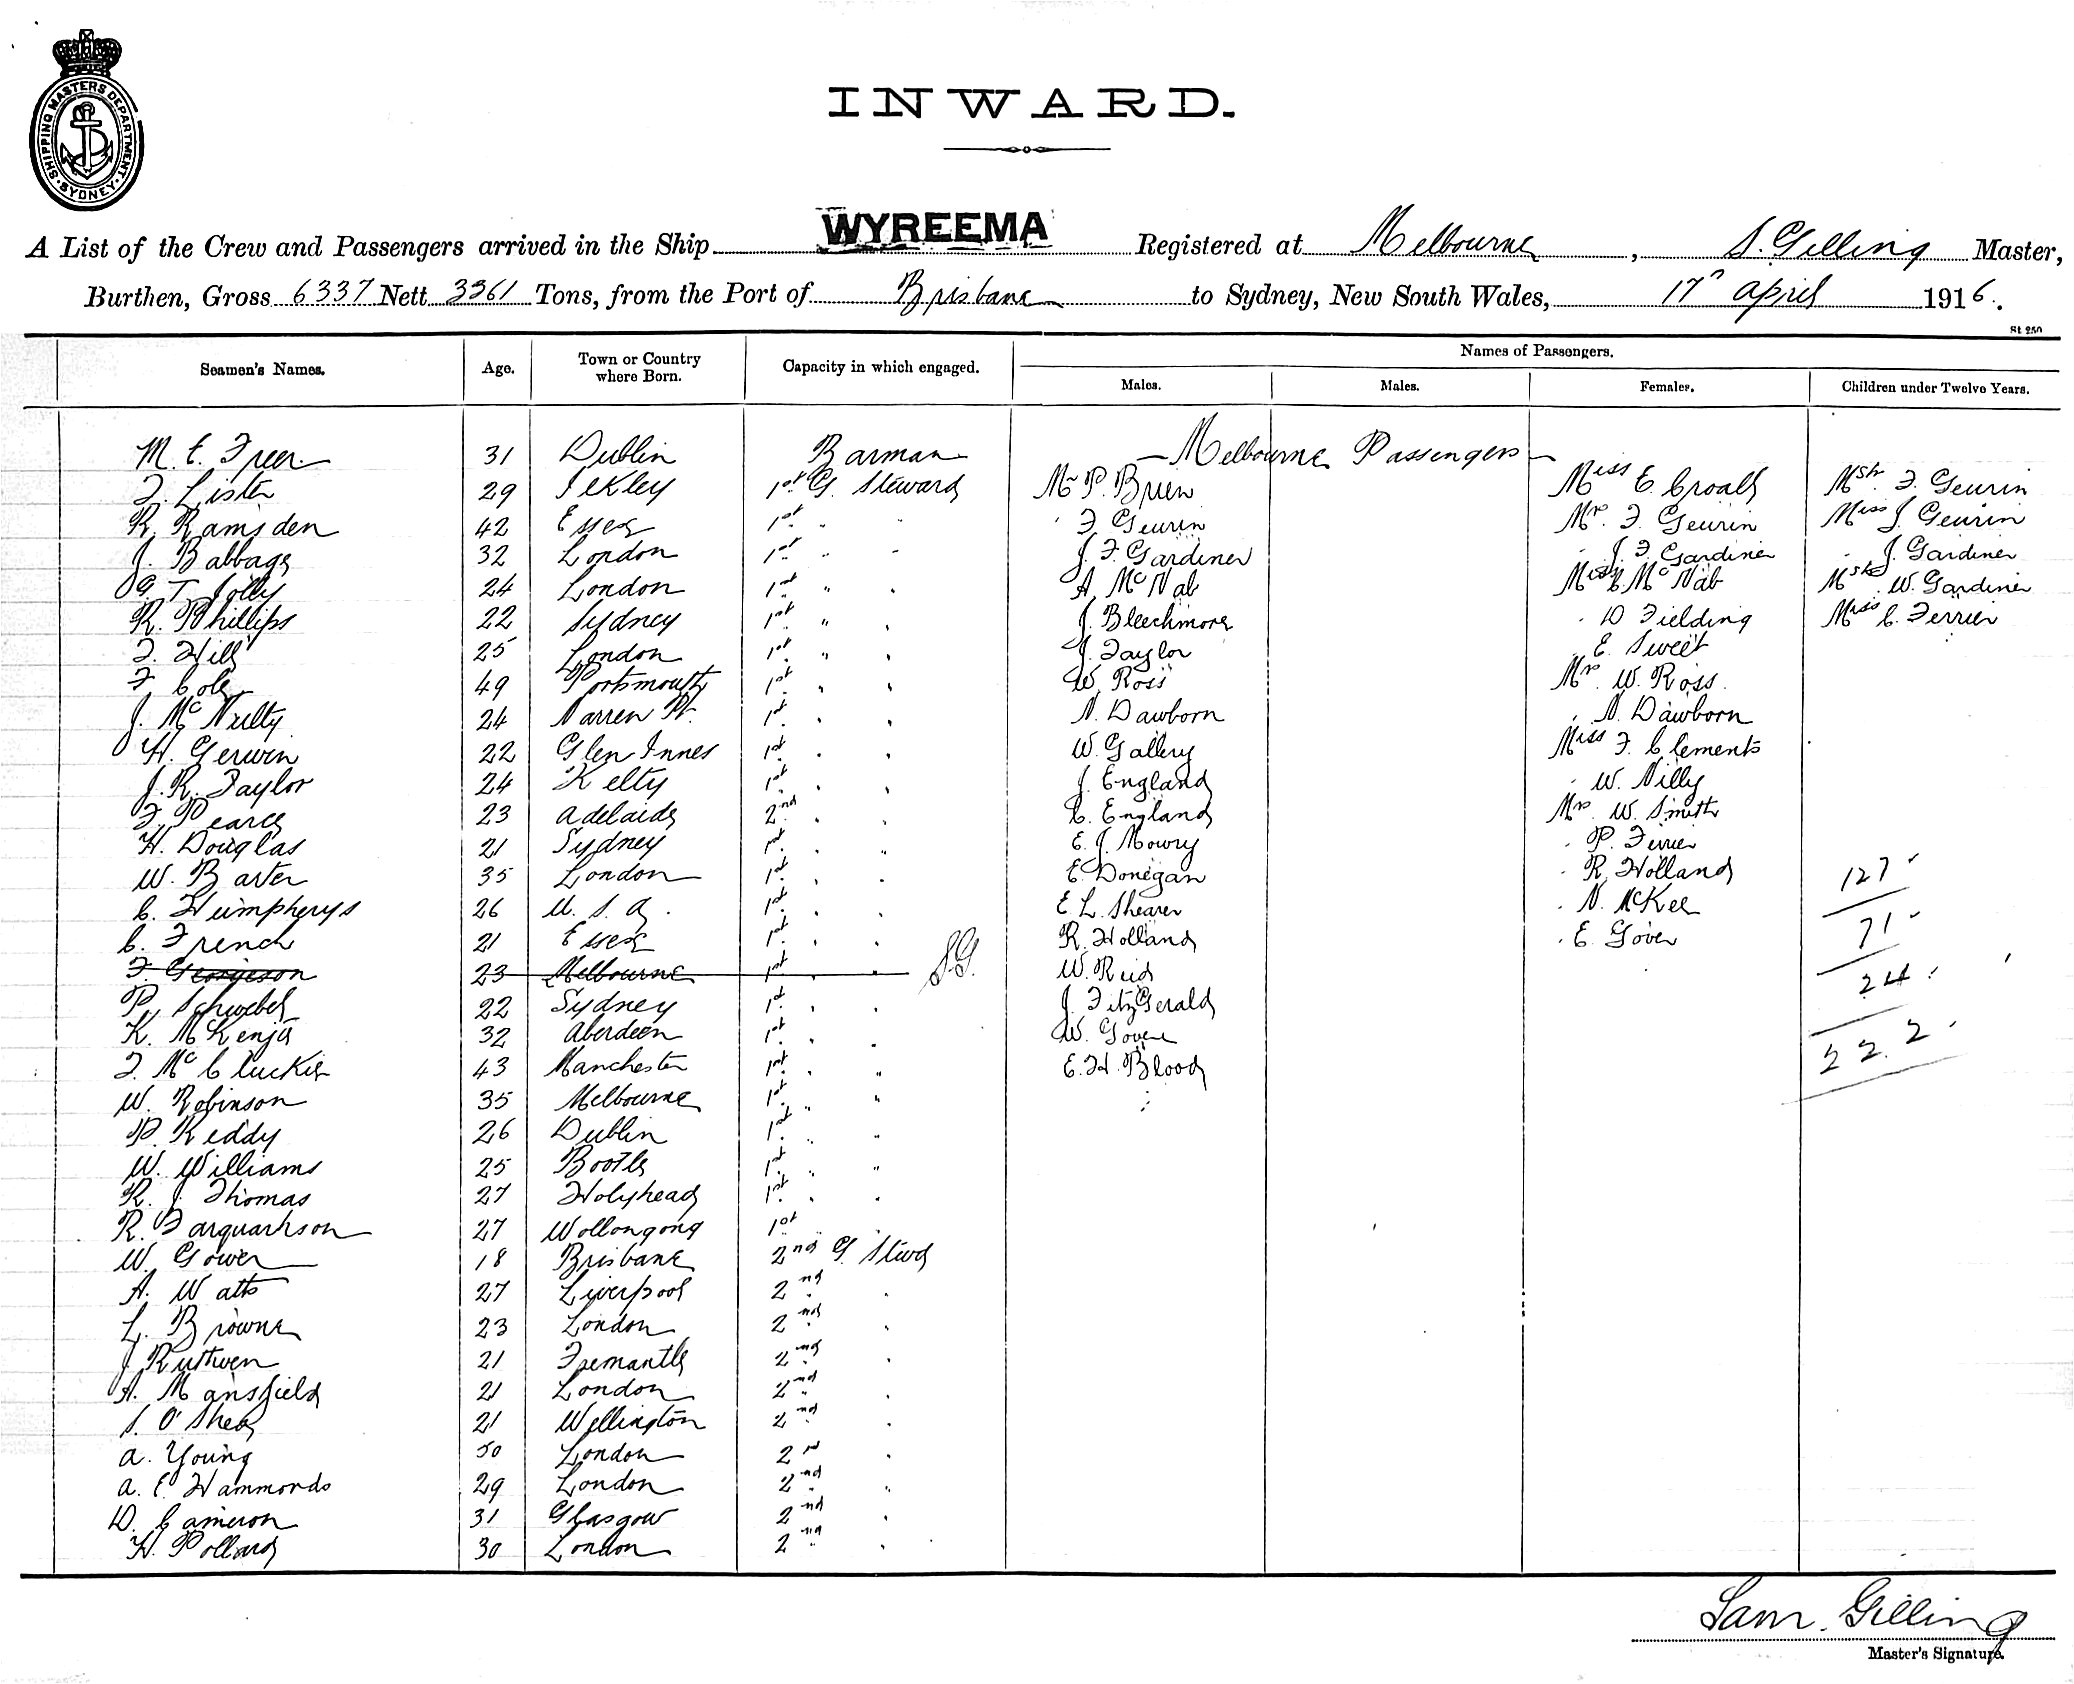 SHIPPING MASTERS DEPARTMENT · SYDNEY ·
INWARD.
A List of the Crew and Passengers arrived in the Ship WYREEMA Registered at Melbourne, S. Gilling Master,
Burthen, Gross 6337 Nett 3361 Tons, from the Port of Brisbane to Sydney, New South Wales, 17 April 1916.
St 250
Seamen's Names. Age. Town or Country where Born. Capacity in which engaged. Names of Passengers.
Males. Males. Females. Children under Twelve Years.
M. E. Freer 31 Dublin Barman — Melbourne Passengers —
F. Lister 29 Ilkley 1st G. Steward Mr P. Brien Miss E. Croall Mstr. F. Geurin
R. Ramsden 42 Essex 1st " F Geurin Mrs. F. Geurin Miss J. Geurin
J. Babbage 32 London 1st " " J. F. Gardiner " J. F. Gardiner " J. Gardiner
G. T. Jolly 24 London 1st " " A McNab Miss McNab Mstr. W. Gardiner
R. Phillips 22 Sydney 1st " " J. Bleechmore " D Fielding Miss C. Ferrier
F. Hill 25 London 1st " " J. Taylor " E. Sweet
F Cole 49 Portsmouth 1st " " W. Ross Mrs. W. Ross
J. McNulty 24 1st " " N. Dawborn " N. Dawborn
H. Gerwin 22 Glen Innes 1st " " W. Gallery Miss F. Clements
J. R. Taylor 24 Kelty 1st " " J. England " W. Nilly
F. Pearce 23 Adelaide 2nd " " C. England Mrs W. Smith
H. Douglas 21 Sydney 1st " " E. J. Mowry " P. Ferrier
W. Barter 35 London 1st " " E. Donegan " R. Holland 127
C. Humpherys 26 U. S. A. 1st " " E L. Shearer " N. McKee
C. French 21 Essex 1st " " R. Holland " E. Gover 71
F. Georgeson 23 Melbourne 1st " " S.G. W. Reid 24
P. Schwebel 22 Sydney 1st " " J. FitzGerald
K. McKenzie 32 Aberdeen 1st " " W. Gover 222
F. McCluckie 43 Manchester 1st " " E. H. Blood
W. Robinson 35 Melbourne 1st " "
P. Reddy 26 Dublin 1st " "
W. Williams 25 Bootle 1st " "
R. J. Thomas 27 Holyhead 1st " "
R. Farquarhson 27 Wollongong 1st " "
W. Gower 18 Brisbane 2nd G. Stewd
A. Watts 27 Liverpool 2nd " "
L. Browne 23 London 2nd " "
J Ruthven 21 Fremantle 2nd " "
A. Mansfield 21 London 2nd " "
S. O'Shea 21 Wellington 2nd " "
A. Young 50 London 2nd "
A. E. Hammonds 29 London 2nd " "
D. Cameron 31 Glasgow 2nd " "
H. Pollard 30 London 2nd " "
Sam. Gilling
Master's Signature.